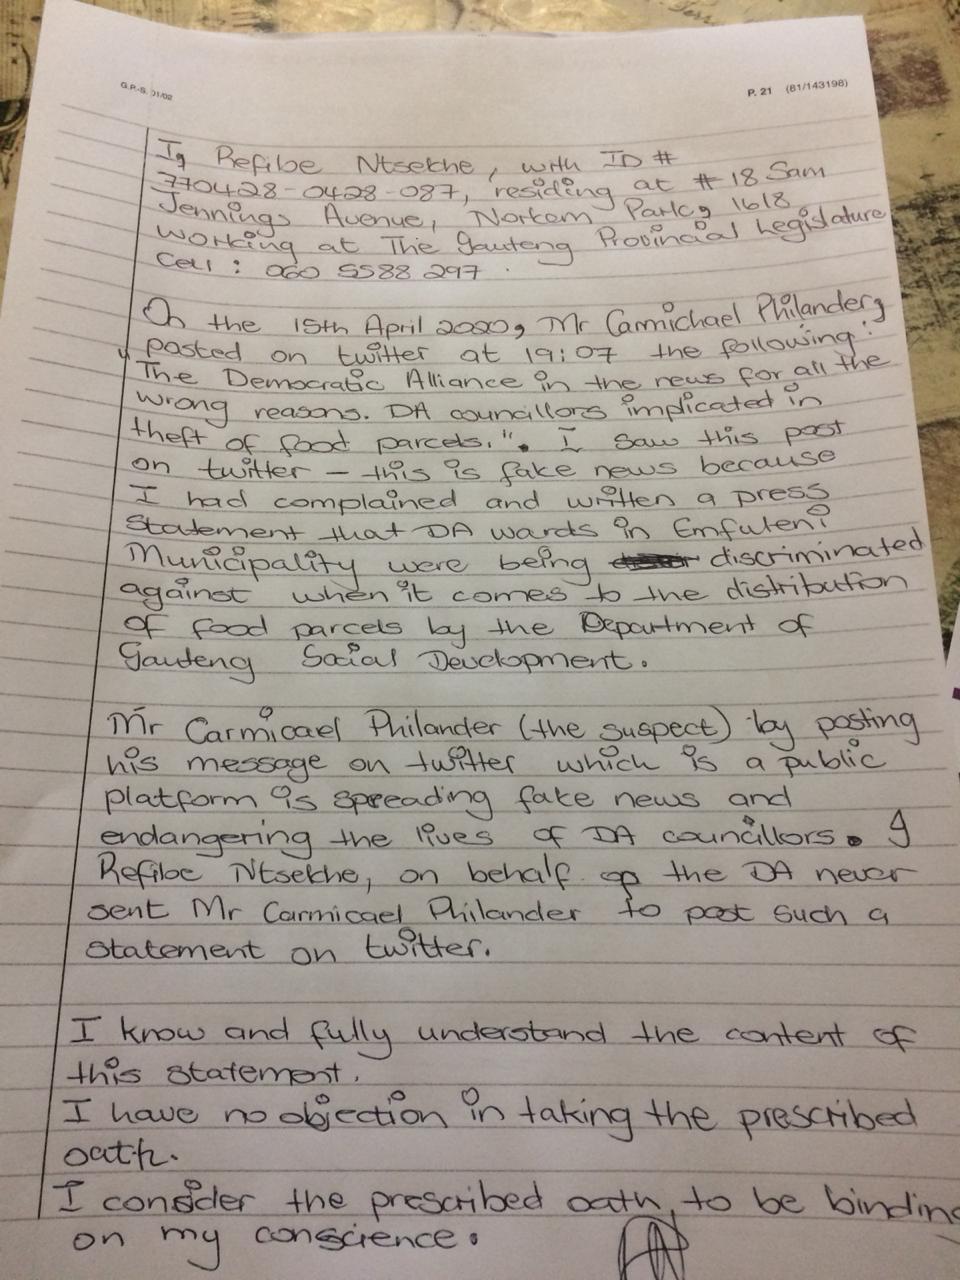 G.P.-S. 01/02
P. 21 (81/143198)
I, Refiloe Ntsekhe, with ID #
770428-0428-087, residing at # 18 Sam
Jennings Avenue, Norkem Park, 1618
working at The Gauteng Provincial Legislature
Cell: 060 5588 297.
On the 15th April 2020, Mr Carmichael Philander,
posted on twitter at 19:07 the following:
"The Democratic Alliance in the news for all the
wrong reasons. DA councillors implicated in
theft of food parcels.". I saw this post
on twitter - this is fake news because
I had complained and written a press
statement that DA wards in Emfuleni
Municipality were being discriminated
against when it comes to the distribution
of food parcels by the Department of
Gauteng Social Development.
Mr Carmicael Philander (the suspect) by posting
his message on twitter which is a public
platform is spreading fake news and
endangering the lives of DA councillors. I
Refiloe Ntsekhe, on behalf of the DA never
sent Mr Carmicael Philander to post such a
statement on twitter.
I know and fully understand the content of
this statement.
I have no objection in taking the prescribed
oath.
I consider the prescribed oath, to be binding
on my conscience.